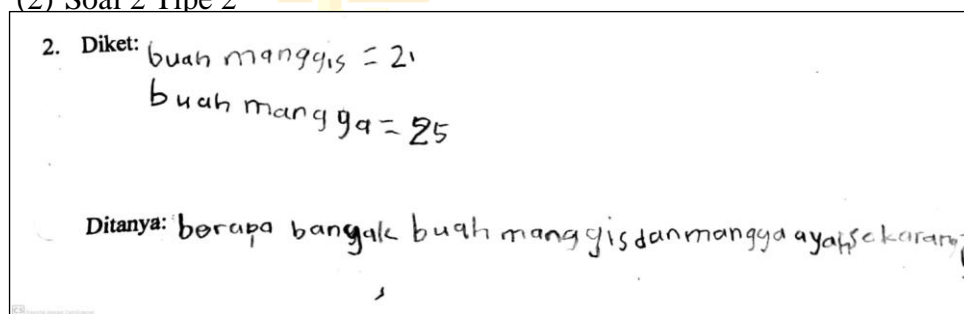 (2) Soal 2 Tipe 2
2. Diket: buah manggis = 21
buah mangga = 25
Ditanya: berapa bangak buah manggis dan mangga ayah sekarang